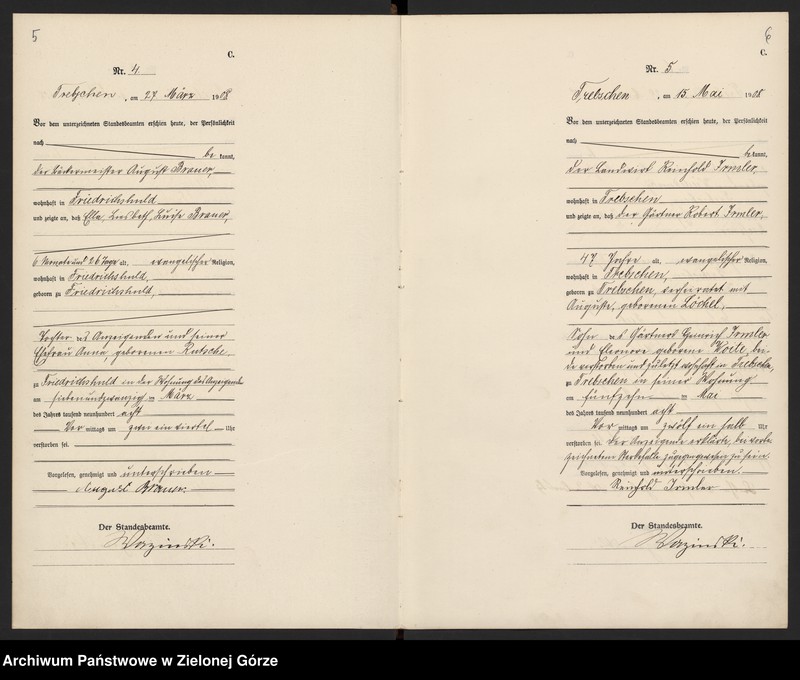 5
C.
Nr. 4
Trebschen, am 27 März 1908
Vor dem unterzeichneten Standesbeamten erschien heute, der Persönlichkeit
nach
be kannt,
der Bäckermeister August Brauer,
wohnhaft in Friedrichshuld
und zeigte an, daß Ella, Luise Brauer,
6 Monate und 26 Tage alt, evangelischer Religion,
wohnhaft in Friedrichshuld,
geboren zu Friedrichshuld,
Tochter des Anzeigenden und seiner
Ehefrau Anna, geborenen Rutsche
zu Friedrichshuld in der Wohnung des Anzeigenden
am siebenundzwanzig ten März
des Jahres tausend neunhundert acht
Vor mittags um zwei ein viertel Uhr
verstorben sei.
Vorgelesen, genehmigt und unterschrieben
August Brauer.
Der Standesbeamte.
Wazinski.
6
C.
Nr. 5
Trebschen, am 15 Mai 1908
Vor dem unterzeichneten Standesbeamten erschien heute, der Persönlichkeit
nach
be kannt,
der Landwirt Reinhold Irmler,
wohnhaft in Trebschen
und zeigte an, daß der Gärtner Robert Irmler,
47 Jahre alt, evangelischer Religion,
wohnhaft in Trebschen,
geboren zu Trebschen, verheiratet mit
Auguste, geborenen Löchel,
Sohn des Gärtners Heinrich Irmler
und Eleonore geborene, bei-
de verstorben und zuletzt wohnhaft in Trebschen,
zu Trebschen in seiner Wohnung
am fünfzehn ten Mai
des Jahres tausend neunhundert acht
Vor mittags um zwölf ein halb Uhr
verstorben sei. Der Anzeigende erklärte, bei vorbe-
zeichnetem Sterbefalle zugegen gewesen zu sein.
Vorgelesen, genehmigt und unterschrieben.
Reinhold Irmler
Der Standesbeamte.
Wazinski.
Archiwum Państwowe w Zielonej Górze